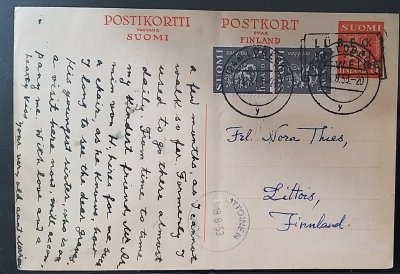 POSTIKORTTI
VASTAUS
SUOMI
POSTKORT
SVAR
FINLAND
SUOMI
SUOMI
LÜBECK
a few months, as I cannot
walk so far. Formerly I
used to go there almost
daily. From time to time
my kindest friend, der
von W. hires for me
a chair, as he knows, how
I long to see the dear graves.
His youngest sister, who is on
a visit here now, will accom-
pany me. With love and a
hearty kiss your very old aunt
Frl. Nora Thies,
Littois,
Finnland.
LITTOINEN
18.8.53